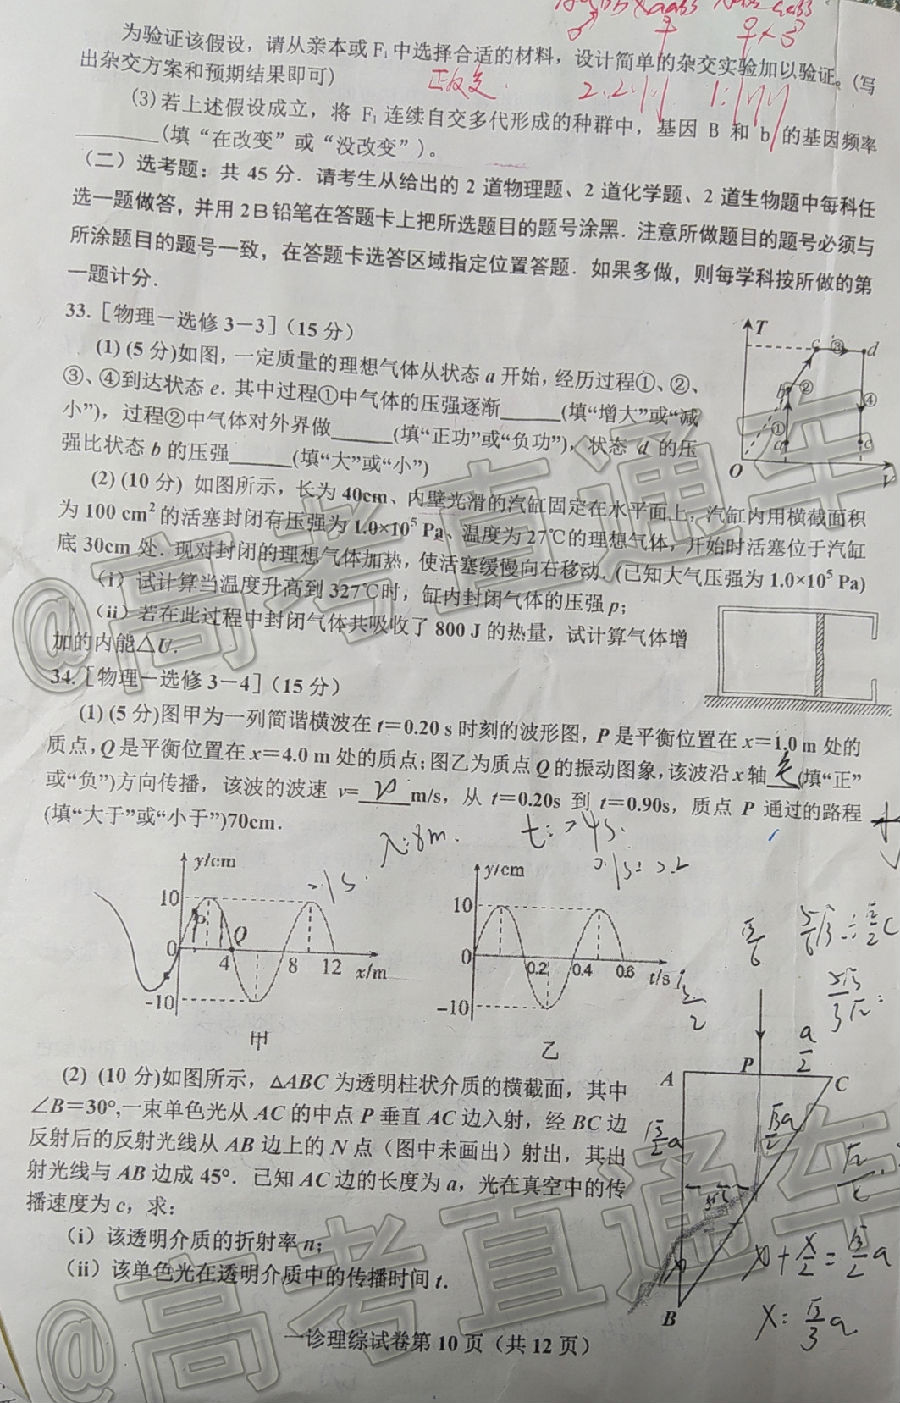 为验证该假设，请从亲本或F₁中选择合适的材料，设计简单的杂交实验加以验证。(写
出杂交方案和预期结果即可)
正反交
(3)若上述假设成立，将 F₁ 连续自交多代形成的种群中，基因 B 和 b 的基因频率
______(填“在改变”或“没改变”)。
(二)选考题：共 45 分．请考生从给出的 2 道物理题、2 道化学题、2 道生物题中每科任
选一题做答，并用 2B 铅笔在答题卡上把所选题目的题号涂黑．注意所做题目的题号必须与
所涂题目的题号一致，在答题卡选答区域指定位置答题．如果多做，则每学科按所做的第
一题计分．
33.［物理－选修 3－3］(15 分)
(1) (5 分)如图，一定质量的理想气体从状态 a 开始，经历过程①、②、
③、④到达状态 e．其中过程①中气体的压强逐渐______(填“增大”或“减
小”)，过程②中气体对外界做______(填“正功”或“负功”)，状态 d 的压
强比状态 b 的压强______(填“大”或“小”)
T
③
d
②
④
①
O
V
(2) (10 分) 如图所示，长为 40cm、内壁光滑的汽缸固定在水平面上，汽缸内用横截面积
为 100 cm² 的活塞封闭有压强为 1.0×10⁵ Pa、温度为 27℃的理想气体，开始时活塞位于汽缸
底 30cm 处．现对封闭的理想气体加热，使活塞缓慢向右移动．(已知大气压强为 1.0×10⁵ Pa)
(i) 试计算当温度升高到 327℃时，缸内封闭气体的压强 p；
(ii) 若在此过程中封闭气体共吸收了 800 J 的热量，试计算气体增
加的内能△U．
34.［物理－选修 3－4］(15 分)
(1) (5 分)图甲为一列简谐横波在 t＝0.20 s 时刻的波形图，P 是平衡位置在 x＝1.0 m 处的
质点，Q 是平衡位置在 x＝4.0 m 处的质点；图乙为质点 Q 的振动图象，该波沿 x 轴 负 (填“正”
或“负”)方向传播，该波的波速 v=______m/s，从 t＝0.20s 到 t＝0.90s，质点 P 通过的路程
(填“大于”或“小于”)70cm．
λ=8m.
y/cm
10
0
-10
P
Q
4
8
12
x/m
甲
y/cm
10
0
-10
0.2
0.4
0.6
t/s
乙
(2) (10 分)如图所示，△ABC 为透明柱状介质的横截面，其中
∠B＝30°，一束单色光从 AC 的中点 P 垂直 AC 边入射，经 BC 边
反射后的反射光线从 AB 边上的 N 点（图中未画出）射出，其出
射光线与 AB 边成 45°．已知 AC 边的长度为 a，光在真空中的传
播速度为 c，求：
(i) 该透明介质的折射率 n；
(ii) 该单色光在透明介质中的传播时间 t．
A
P
C
B
x+x/2=√3/2 a
x=√3/3 a
一诊理综试卷第 10 页（共 12 页）
@高考直通车
@高考直通车